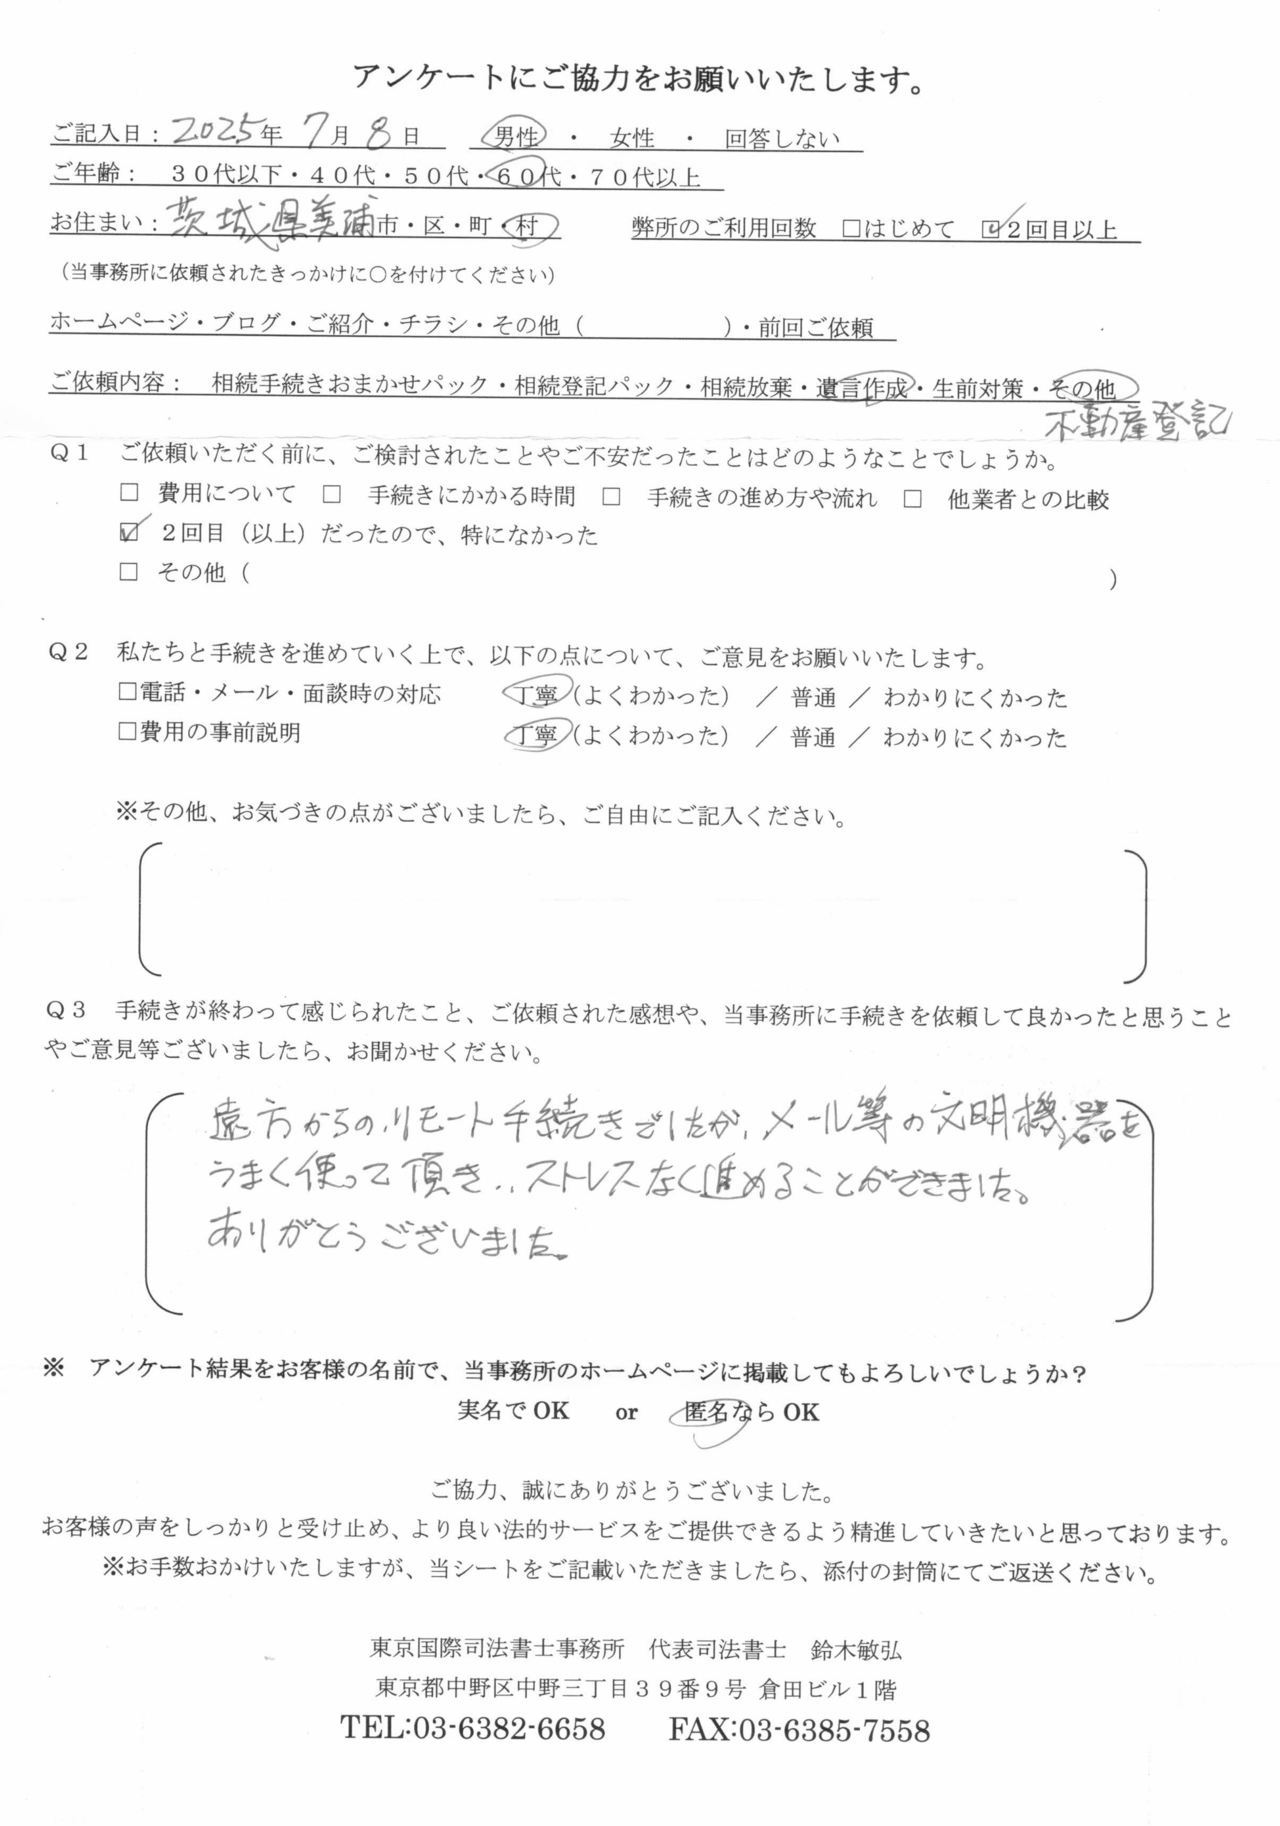 アンケートにご協力をお願いいたします。
ご記入日：2025年 7月 8日　男性　・　女性　・　回答しない
ご年齢：　３０代以下・４０代・５０代・６０代・７０代以上
お住まい：茨城県美浦市・区・町・村　弊所のご利用回数　□はじめて　☑２回目以上
（当事務所に依頼されたきっかけに○を付けてください）
ホームページ・ブログ・ご紹介・チラシ・その他（　　　　　　）・前回ご依頼
ご依頼内容：　相続手続きおまかせパック・相続登記パック・相続放棄・遺言作成・生前対策・その他
不動産登記
Ｑ１　ご依頼いただく前に、ご検討されたことやご不安だったことはどのようなことでしょうか。
□　費用について　□　手続きにかかる時間　□　手続きの進め方や流れ　□　他業者との比較
☑　２回目（以上）だったので、特になかった
□　その他（　　　　　　　　　　　　　　　　）
Ｑ２　私たちと手続きを進めていく上で、以下の点について、ご意見をお願いいたします。
□電話・メール・面談時の対応　丁寧（よくわかった）　／　普通　／　わかりにくかった
□費用の事前説明　丁寧（よくわかった）　／　普通　／　わかりにくかった
※その他、お気づきの点がございましたら、ご自由にご記入ください。
Ｑ３　手続きが終わって感じられたこと、ご依頼された感想や、当事務所に手続きを依頼して良かったと思うこと
やご意見等ございましたら、お聞かせください。
遠方からの、リモート手続きでしたが、メール等の文明機器を
うまく使って頂き、ストレスなく進めることができました。
ありがとうございました。
※　アンケート結果をお客様の名前で、当事務所のホームページに掲載してもよろしいでしょうか？
実名でOK　or　匿名ならOK
ご協力、誠にありがとうございました。
お客様の声をしっかりと受け止め、より良い法的サービスをご提供できるよう精進していきたいと思っております。
※お手数おかけいたしますが、当シートをご記載いただきましたら、添付の封筒にてご返送ください。
東京国際司法書士事務所　代表司法書士　鈴木敏弘
東京都中野区中野三丁目３９番９号 倉田ビル１階
TEL:03-6382-6658　FAX:03-6385-7558